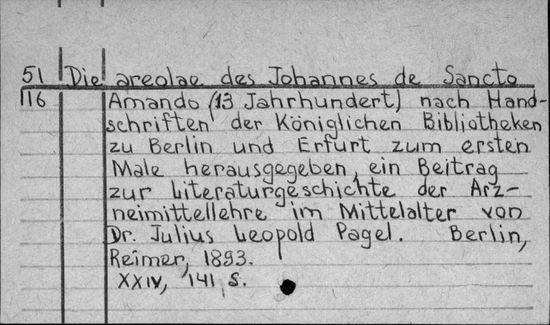 51 Die areolae des Johannes de Sancto
116 Amando (13 Jahrhundert) nach Hand-
schriften der Königlichen Bibliotheken
zu Berlin und Erfurt zum ersten
Male herausgegeben, ein Beitrag
zur Literaturgeschichte der Arz-
neimittellehre im Mittelalter von
Dr. Julius Leopold Pagel. Berlin,
Reimer, 1893.
XXIV, 141 S.